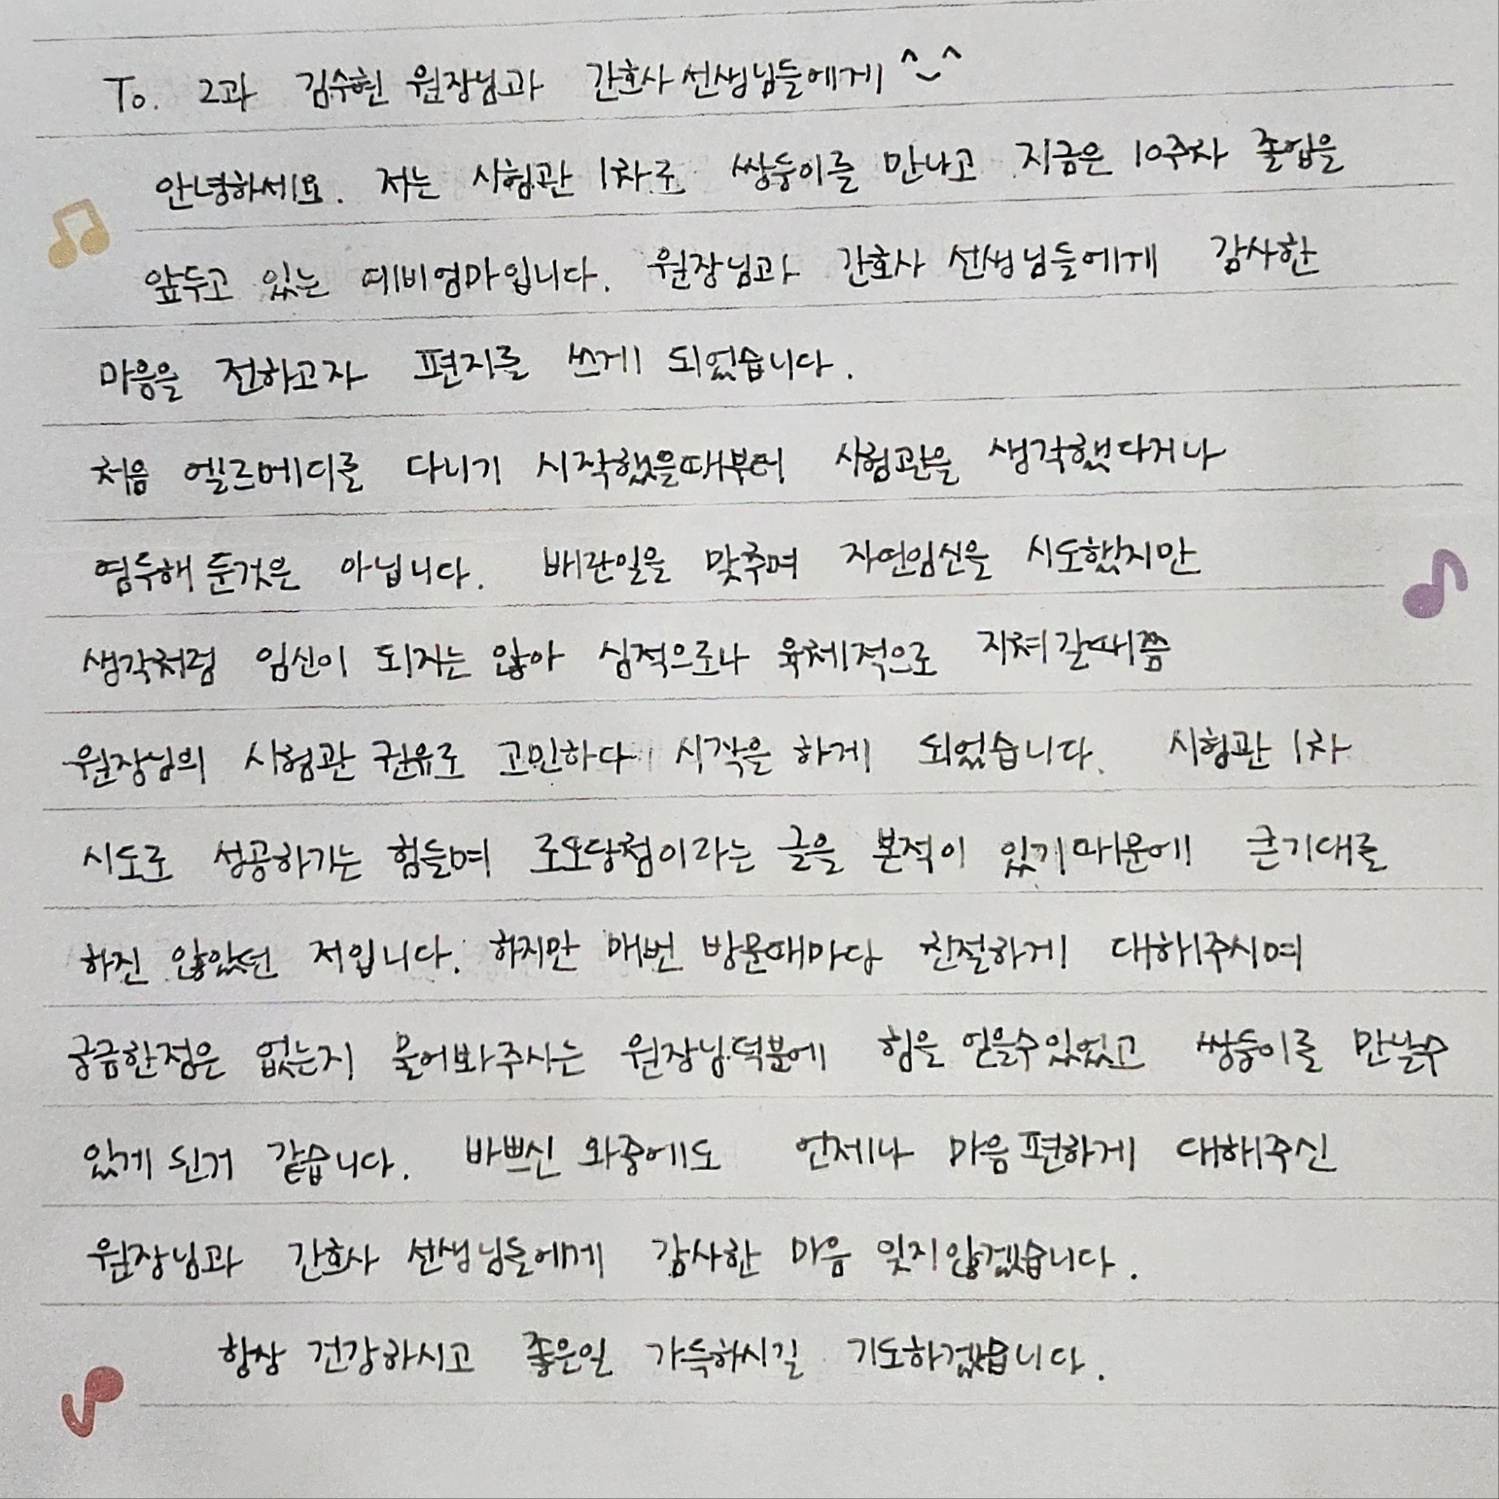 To. 2과 김수현 원장님과 간호사 선생님들에게 ^~^
안녕하세요. 저는 시험관 1차로 쌍둥이를 만나고 지금은 10주차 졸업을
앞두고 있는 예비엄마입니다. 원장님과 간호사 선생님들에게 감사한
마음을 전하고자 편지를 쓰게 되었습니다.
처음 엘르메디를 다니기 시작했을때부터 시험관을 생각했다거나
염두해 둔것은 아닙니다. 배란일을 맞추며 자연임신을 시도했지만
생각처럼 임신이 되지는 않아 심적으로나 육체적으로 지쳐갈때쯤
원장님의 시험관 권유로 고민하다 시작을 하게 되었습니다. 시험관 1차
시도로 성공하기는 힘들며 로또당첨이라는 글을 본적이 있기때문에 큰기대를
하진 않았던 저입니다. 하지만 매번 방문때마다 친절하게 대해주시며
궁금한점은 없는지 물어봐주시는 원장님덕분에 힘을 얻을수있었고 쌍둥이를 만날수
있게 된거 같습니다. 바쁘신 와중에도 언제나 마음 편하게 대해주신
원장님과 간호사 선생님들에게 감사한 마음 잊지않겠습니다.
항상 건강하시고 좋은일 가득하시길 기도하겠습니다.